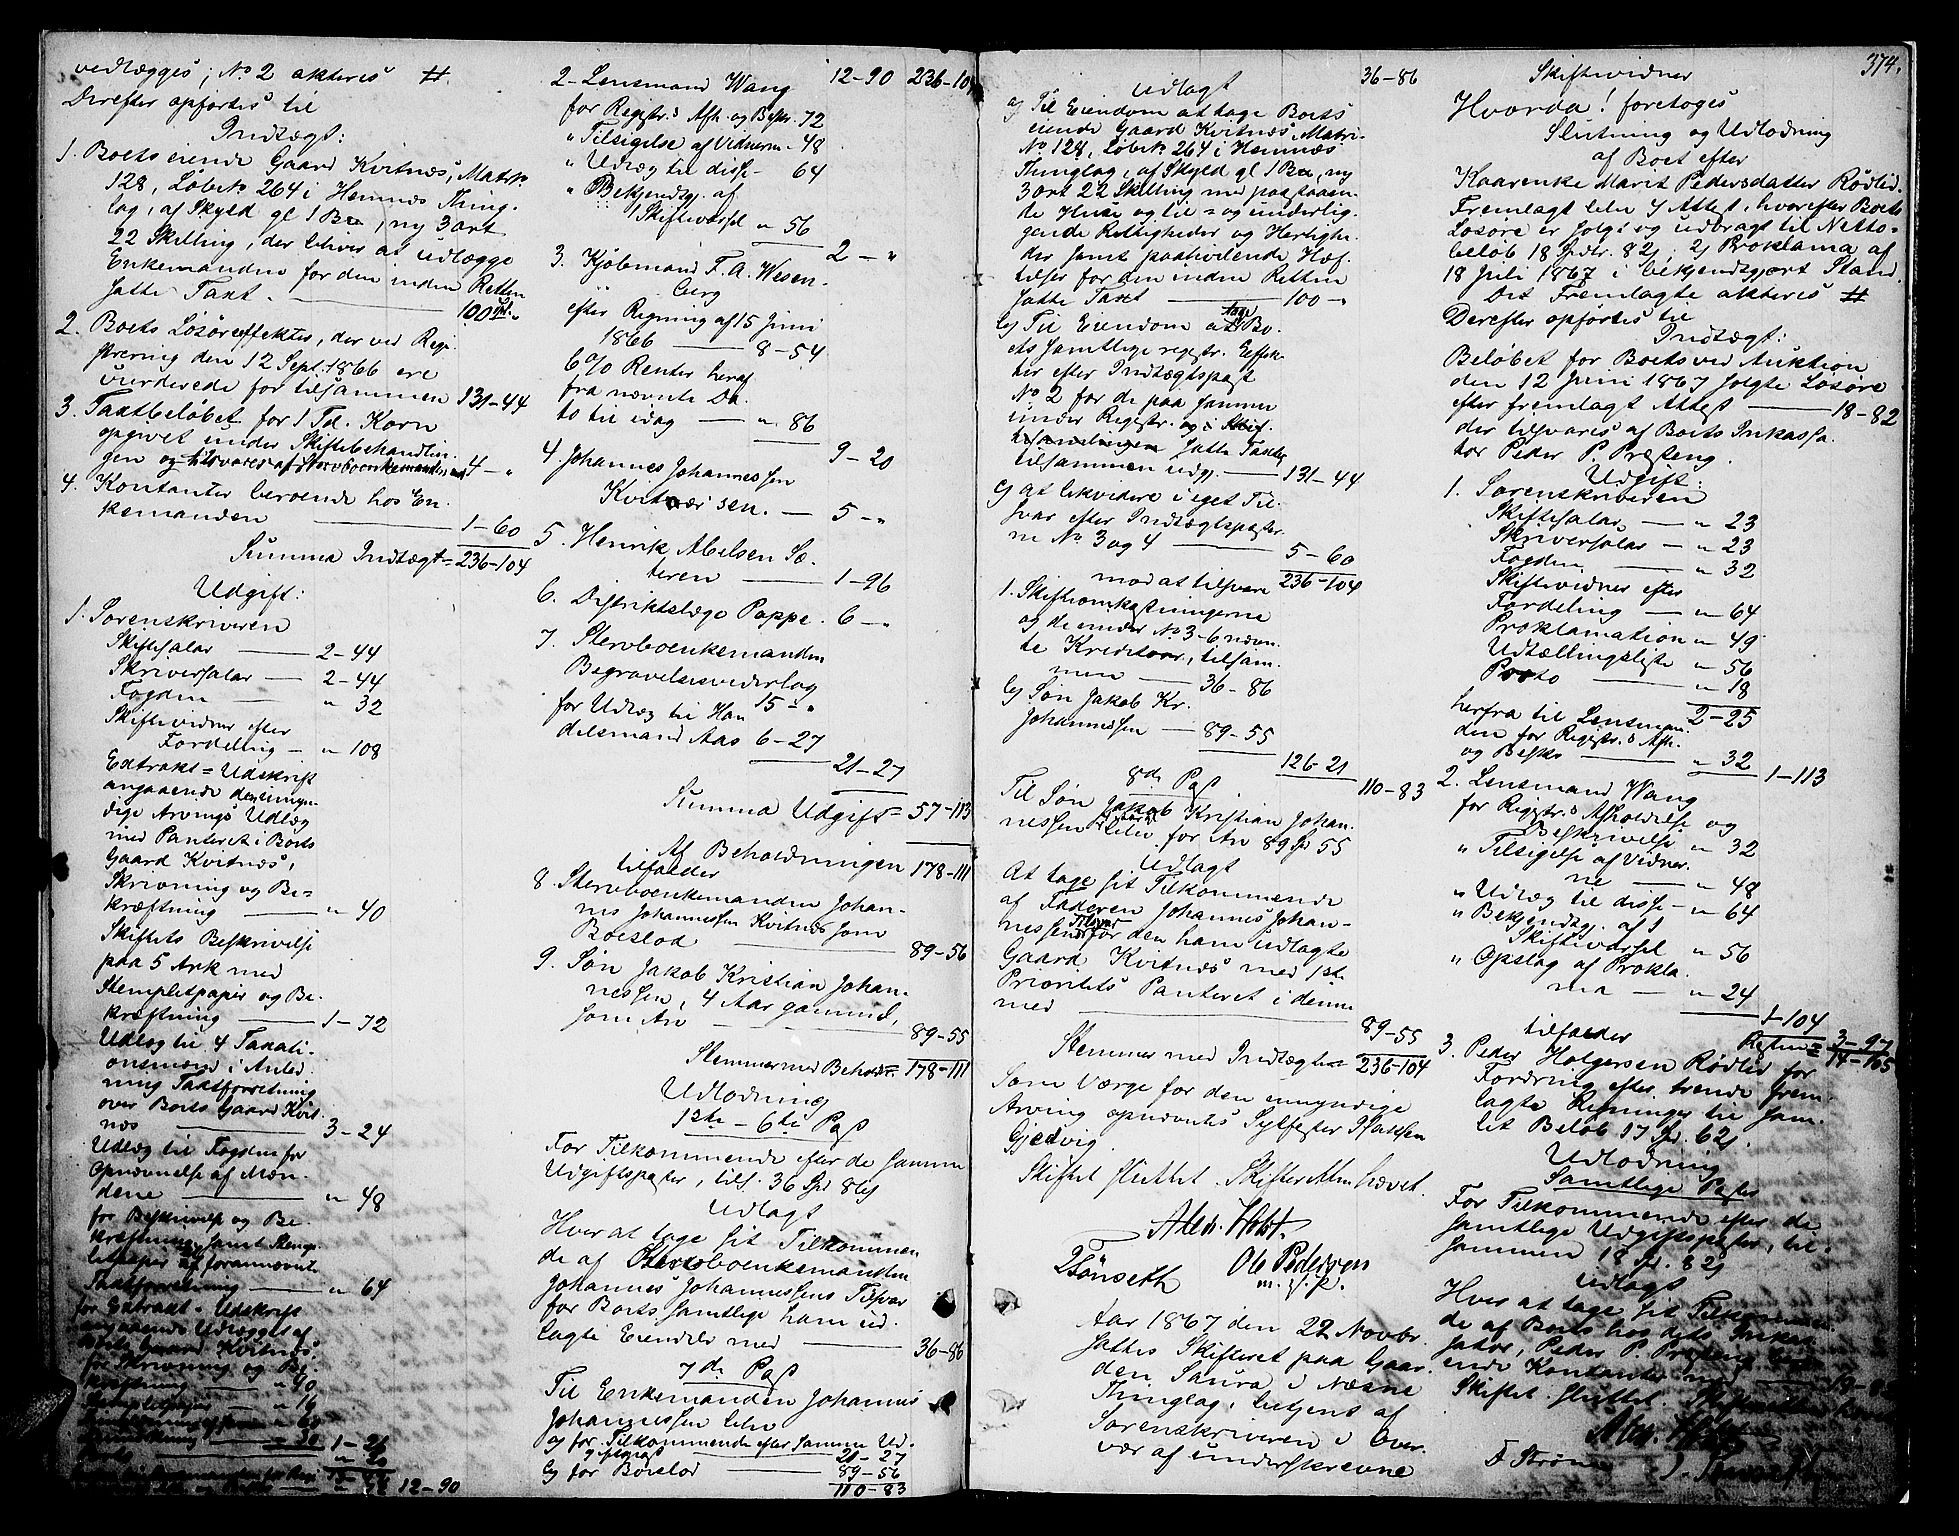 vedlægges; No 2 akteres #.
Derefter opførtes til
Indtægt:
1. Boets eiende Gaard Kvitnæs, Matr.
128, Løbeno 264 i Hemnæs Thing-
lag, af Skyld gl 1 Bpd, ny 3 ort
22 Skilling, der bliver at udlægge
Enkemanden for den inden Retten
satte Taxt. 100 Sp "
2. Boets Løsøreeffekter, der ved Regi-
strering den 12 Sept. 1866 ere
vurderede for tilsammen 131-44
3. Taxtbeløbet for 1 Td. Korn
opgivet under Skiftebehandlin-
gen og tilsvares af Stervboenkemanden 4-"
4. Kontanter beroende hos En-
kemanden 1-60
Summa Indtægt = 236-104
Udgift:
1. Sorenskriveren
Skiftesalar 2-44
Skriversalar 2-44
Fogden " 32
Skiftevidner efter
Fordeling " 108
Extrakt-Udskrift
angaaende den umyn-
dige Arvings Udlæg
med Panteret i Boets
Gaard Kvitnæs,
Skrivning og Be-
kræftning " 40
Skiftets Beskrivelse
paa 5 Ark med
Stempletpapir og Be-
kræftning 1-72
Udlæg til 4 Taxati-
onsmænd i Anled-
ning Taxtforretning
over Boets Gaard Kvit-
næs 3-24
Udlæg til Fogden for
Opnævnelse af Mæn-
dene " 48
for Beskrivelse og Be-
kræftning samt Stemp-
letpapir af forannævnte
Taxtforretning " 64
for Extrakt-Udskrift
angaaende Udlægget af
Boets Gaard Kvitnæs,
for Skrivning og Be-
kræftning " 40
" 16
1-26
12-90
2. Lensmand Wang 12-90 236-104
for Registr.s Afh. og Beskr. 72
" Tilsigelse af Vidnerne 48
" Udlæg til disse 64
" Bekjendtg. af
Skiftevarsel " 56
2-"
3. Kjøbmand F. A. Wesen-
berg
efter Regning af 15 Juni
1866 8-54
6 % Renter heraf
fra nævnte Da-
to til idag " 86
9-20
4. Johannes Johannessen
Kvitnæs sen. 5-"
5. Henrik Abelsen Sæ-
teren 1-96
6. Distriktslæge Poppe. 6-"
7. Stervboenkemanden
Begravelsesvederlag
15-"
for Udlæg til Han-
delsmand Aas 6-27
21-27
Summa Udgift = 57-113
Af Beholdningen 178-111
tilfalder
8. Stervboenkemanden Johan-
nes Johannessen Kvitnæs som
Boeslod 89-56
9. Søn Jakob Kristian Johan-
nessen, 4 Aar gammel,
som Arv 89-55
Stemmer med Beholdn. 178-111
Udlodning
1ste - 6te Post
For Tilkommende efter de samme
Udgiftsposter, tils. 36 Spd 86 s
Udlagt
Hver at tage sit Tilkommen-
de af Stervboenkemanden
Johannes Johannessens Tilsvar
for Boets samtlige ham ud-
lagte Eiendele med 36-86
7de Post
Til Enkemanden Johannes
Johannessen blev
a) for Tilkommende efter samme Ud-
giftspost 21-27
b) for Boeslod 89-56
110-83
374.
Udlagt 36-86
a) Til Eiendom at tage Boets
eiende Gaard Kvitnæs, Matr.
No 128, Løbeno 264 i Hemnæs
Thinglag, af Skyld gl 1 Bpd, ny
3 ort 22 Skilling med paastaaen-
de Huse og til- og underlig-
gende Rettigheder og Herlighe-
der samt paahvilende Hæf-
telser for den inden Retten
satte Taxt 100-"
b) Til Eiendom at tage Bo-
ets samtlige registr. Effek-
ter efter Indtægtspost
No 2 for de paa samme
under Registr. og Skif-
tebehandlingen satte Taxter
tilsammen udg. 131-44
c) At likvidere i eget Til-
svar efter Indtægtsposter-
ne No 3 og 4 5-60
236-104
mod at tilsvare
1. Skifteomkostningerne
og de under No 3-6 nævn-
te Kreditorer, tilsam-
men 36-86
b) Søn Jakob Kr.
Johannessen 89-55
126-21
110-83
8de Post
Til Søn Jakob Kristian Johan-
nessen blev for Arv 89 Sp 55
Udlagt
At tage sit Tilkommende
af Faderen Johannes Johan-
nessens Tilsvar for den ham udlagte
Gaard Kvitnæs med 1ste
Prioritets Panteret i denne
med 89-55
Stemmer med Indtægten 236-104
Som Værge for den umyndige
Arving opnævntes Sylfester Isaksen
Gjesvig.
Skiftet sluttet. Skifteretten hævet.
Alex. Holst.
Tønseth Ole Pedersen
m. p. P.
Aar 1867 den 22 Novbr.
sattes Skifteret paa Gaar-
den Saura i Næsne
Thinglag, betjent af
Sorenskriveren i Over-
vær af underskrevne
Skiftevidner
Hvorda! foretoges
Slutning og Udlodning
af Boet efter
Kaarenke Marit Pedersdatter Rødlid.
Fremlagt blev 1) Attest, hvorefter Boets
Løsøre er solgt og udbragt til Netto-
beløb 18 Spdlr. 82 s, 2) Proklama af
18 Juli 1867 i bekjendtgjort Stand.
Det Fremlagte akteres #
Derefter opførtes til
Indtægt:
Beløbet for Boets ved Auktion
den 12 Juni 1867 solgte Løsøre
efter fremlagt Attest 18-82
der tilsvares af Boets Inkassa-
tor Peder P. Præsteng.
Udgift:
1. Sorenskriveren
Skiftesalar " 23
Skriversalar " 23
Fogden " 32
Skiftevidner efter
Fordeling " 64
Proklamation " 49
Udtællingsliste " 56
Porto " 18
2-25
herfra til Lensman-
den for Registr.s Afh.
og Beskr. " 32
1-113
2. Lensmand Wang
for Registr.s Afholdelse og
Beskrivelse " 32
" Tilsigelse af Vidner-
ne " 48
" Udlæg til disse " 64
" Bekjendtg. af
Skiftevarsel " 56
" Opslag af Prokla-
ma " 24
1-104
3-97
tilfalder Resten = 14-105
3. Peder Holgersen Rødlid for
Fordring efter trende frem-
lagte Regninger til sam-
let Beløb 17 Sp. 62 s.
Udlodning
Samtlige Poster
For Tilkommende efter de
samtlige Udgiftsposter, til-
sammen 18 Sp. 82 s
Udlagt
Hver at tage sit Tilkommen-
de af Boets hos dets Inkas-
sator, Peder P. Præsteng
ende Kontanter med 18-82
Skiftet sluttet. Skifteretten hævet.
Alex. Holst